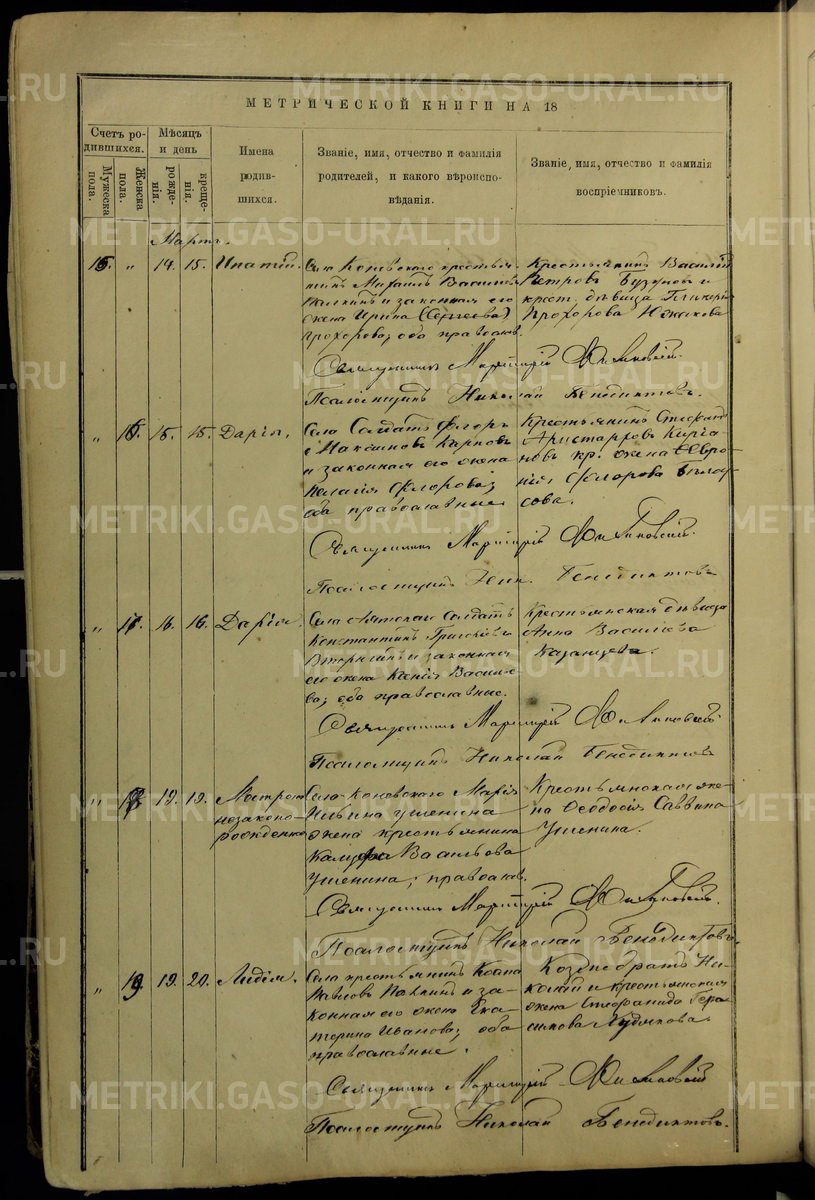 МЕТРИЧЕСКОЙ КНИГИ НА 18
Счетъ ро-
дившихся.
Мужеска
пола.
Женска
пола.
Мѣсяцъ
и день
рожде-
нія.
креще-
нія.
Имена
родив-
шихся.
Званіе, имя, отчество и фамилія
родителей, и какого вѣроиспо-
вѣданія.
Званіе, имя, отчество и фамилія
воспріемниковъ.
Мартъ.
15. " 14. 15. Ипатій.
Села Коневскаго крестья-
нинъ Михаилъ Васильевъ
и законная его
жена Ирина (Сергѣева)
Прохорова; оба православ.
Крестьянинъ Василій
Петровъ Бузуновъ и
крест. дѣвица Гликерія
Прохорова Южакова
Священникъ Мартирій
Псаломщикъ Николай Бенедиктовъ.
" 16. 15. 15. Дарія.
Села Солдатъ Флоръ
Максимовъ Карповъ
и законная его жена
Пелагія Флорова;
оба православные
Крестьянинъ Стефанъ
Аристарховъ Кирья-
новъ кр. жена Евро-
нія Флорова Бѣлоу-
сова.
Священникъ Мартирій
Псаломщикъ Ник. Бенедиктовъ
" 17. 16. 16. Дарія.
Села Солдатъ
Константинъ Григорьевъ
Вторыгинъ и законная
его жена Ксенія Василье-
ва; оба православные.
Крестьянская дѣвица
Анна Васильева
Казанцева.
Священникъ Мартирій
Псаломщикъ Николай Бенедиктовъ
" 18. 19. 19. Матрона
незаконо-
рожденна
Села Коневскаго Марія
Ильина Ушенина
жена крестьянина
Васильева
Ушенина; православ.
Крестьянская же-
на Ѳеодосія Саввина
Ушенина.
Священникъ Мартирій
Псаломщикъ Николай Бенедиктовъ.
" 19. 19. 20. Лидія.
Села крестьянинъ Косма
Павловъ и за-
конная его жена Ека-
терина Иванова; оба
православные.
Ни-
колай и крестьянская
жена Стефанида Гера-
симова Худякова
Священникъ Мартирій
Псаломщикъ Николай Бенедиктовъ.
METRIKI.GASO-URAL.RU